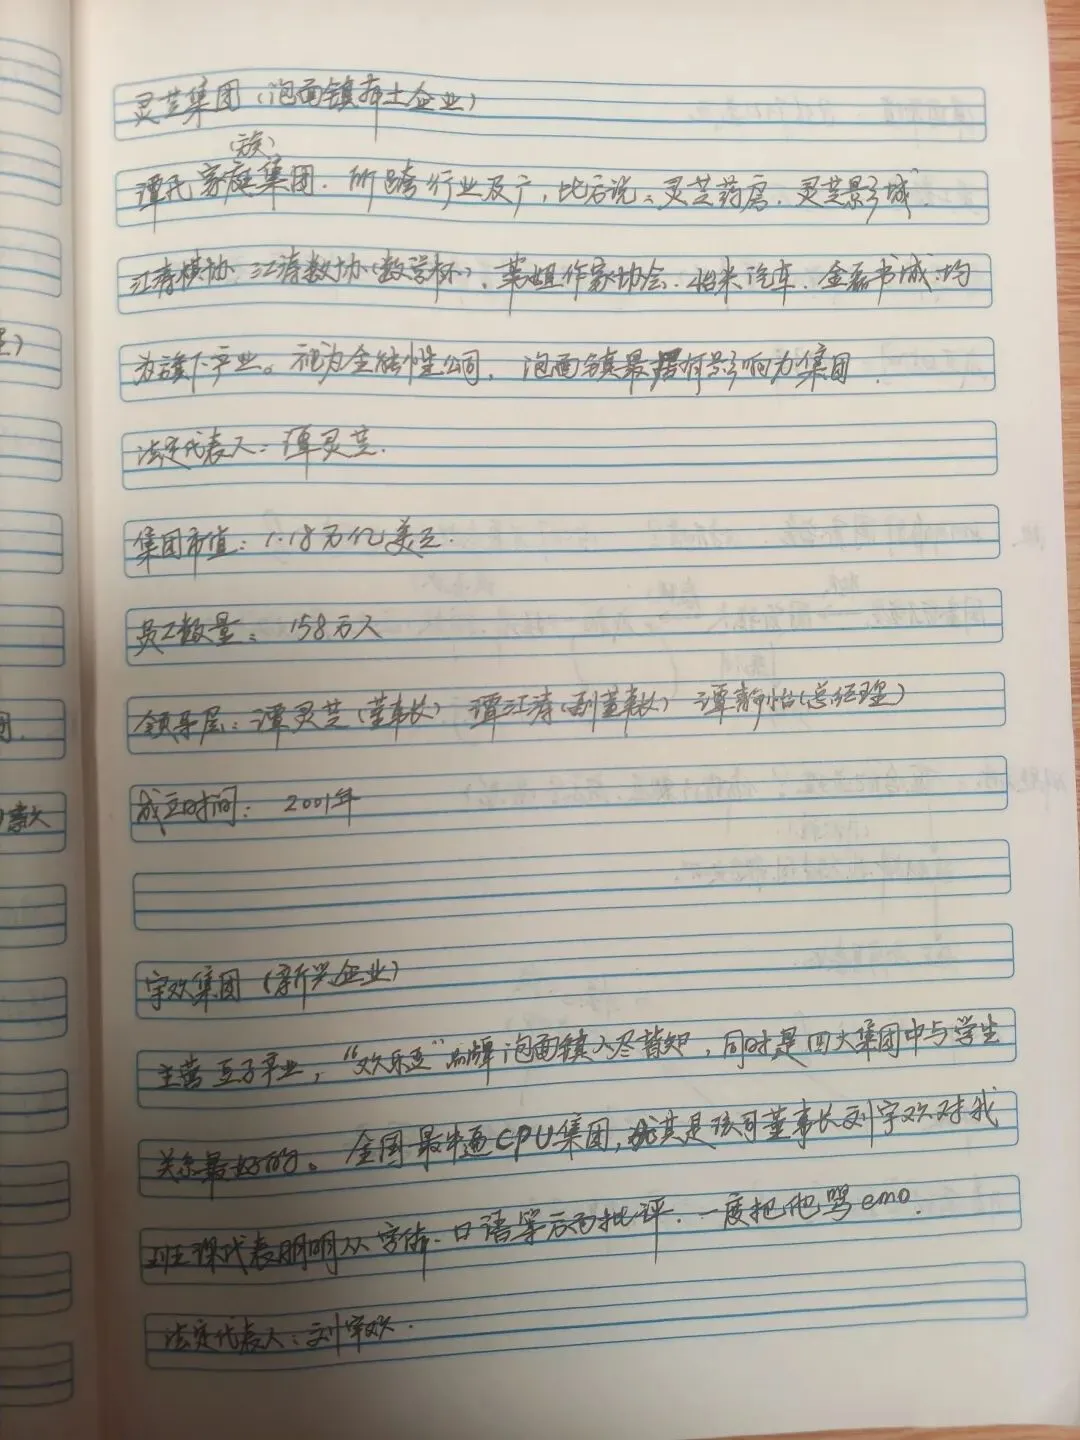 灵芝集团（泡面镇本土企业）
（族）
谭氏家庭集团．所跨行业及广，比方说、灵芝药房．灵芝影城．
江涛棋协．江涛数协（数学杯）．莱姐作家协会．怡来汽车．金磊书城．均
为旗下产业。视为全能性公司，泡面镇最具有影响力集团．
法定代表人：谭灵芝．
集团市值：1.18万亿美元．
员工数量：158万人
领导层：谭灵芝（董事长） 谭江涛（副董事长） 谭静怡（总经理）
成立时间：2001年
宇欢集团（新兴企业）
主营豆子事业，“欢乐豆”品牌泡面镇人尽皆知，同时是四大集团中与学生
关系最好的。全国最普遍CPU集团，尤其是该司董事长刘宇欢对我
班课代表明明从字体．口语等方面批评．一度把他骂emo．
法定代表人：刘宇欢．